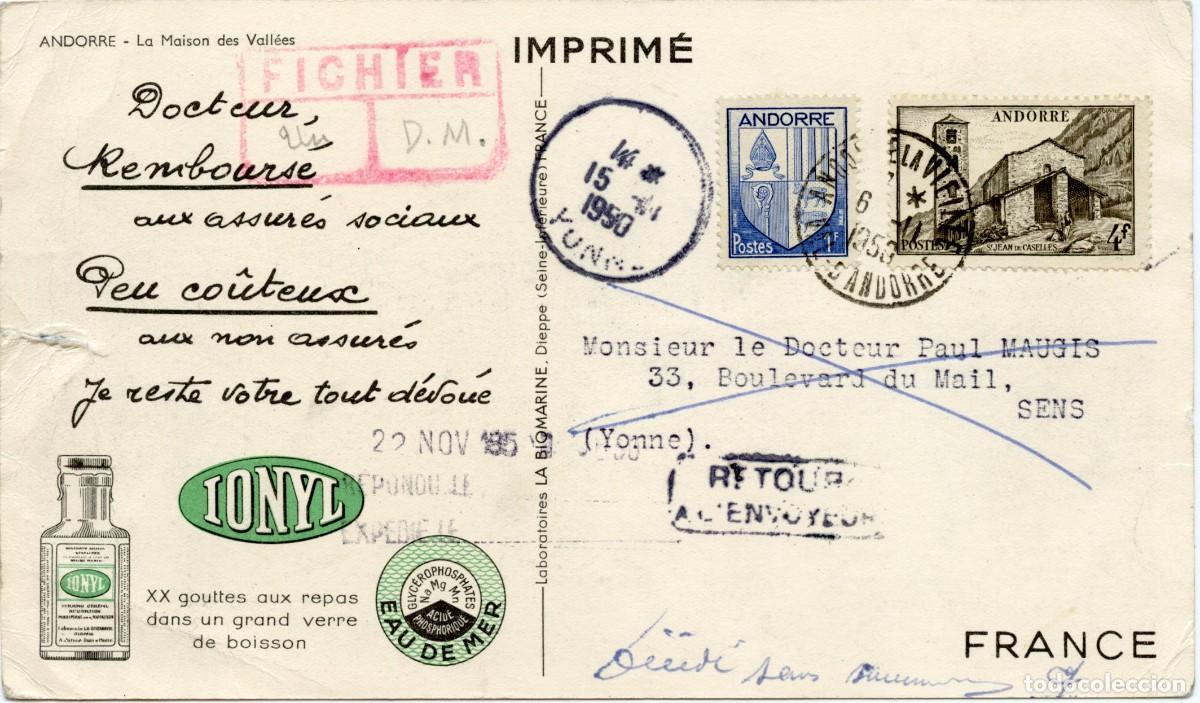 ANDORRE - La Maison des Vallées
FICHIER
D. M.
Docteur,
Remboursé
aux assurés sociaux
Peu coûteux
aux non assurés
Je reste votre tout dévoué
22 NOV 195
RÉPONDU LE
EXPÉDIÉ LE
IONYL
IONYL
XX gouttes aux repas
dans un grand verre
de boisson
GLYCÉROPHOSPHATES
Na Mg Mn
ACIDE
PHOSPHORIQUE
EAU DE MER
Laboratoires LA BIOMARINE, Dieppe (Seine-Inférieure) FRANCE
IMPRIMÉ
15
1950
YONNE
ANDORRE
Postes
1F
ANDORRE LA VIEILLE
6
1950
D'ANDORRE
ANDORRE
POSTES
ST JEAN DE CASELLES
4f
Monsieur le Docteur Paul MAUGIS
33, Boulevard du Mail,
SENS
(Yonne).
RETOUR
A L'ENVOYEUR
FRANCE
sans
todocoleccion